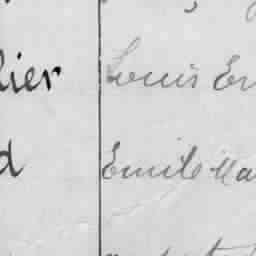 lier Louis Er
d Emile Ma